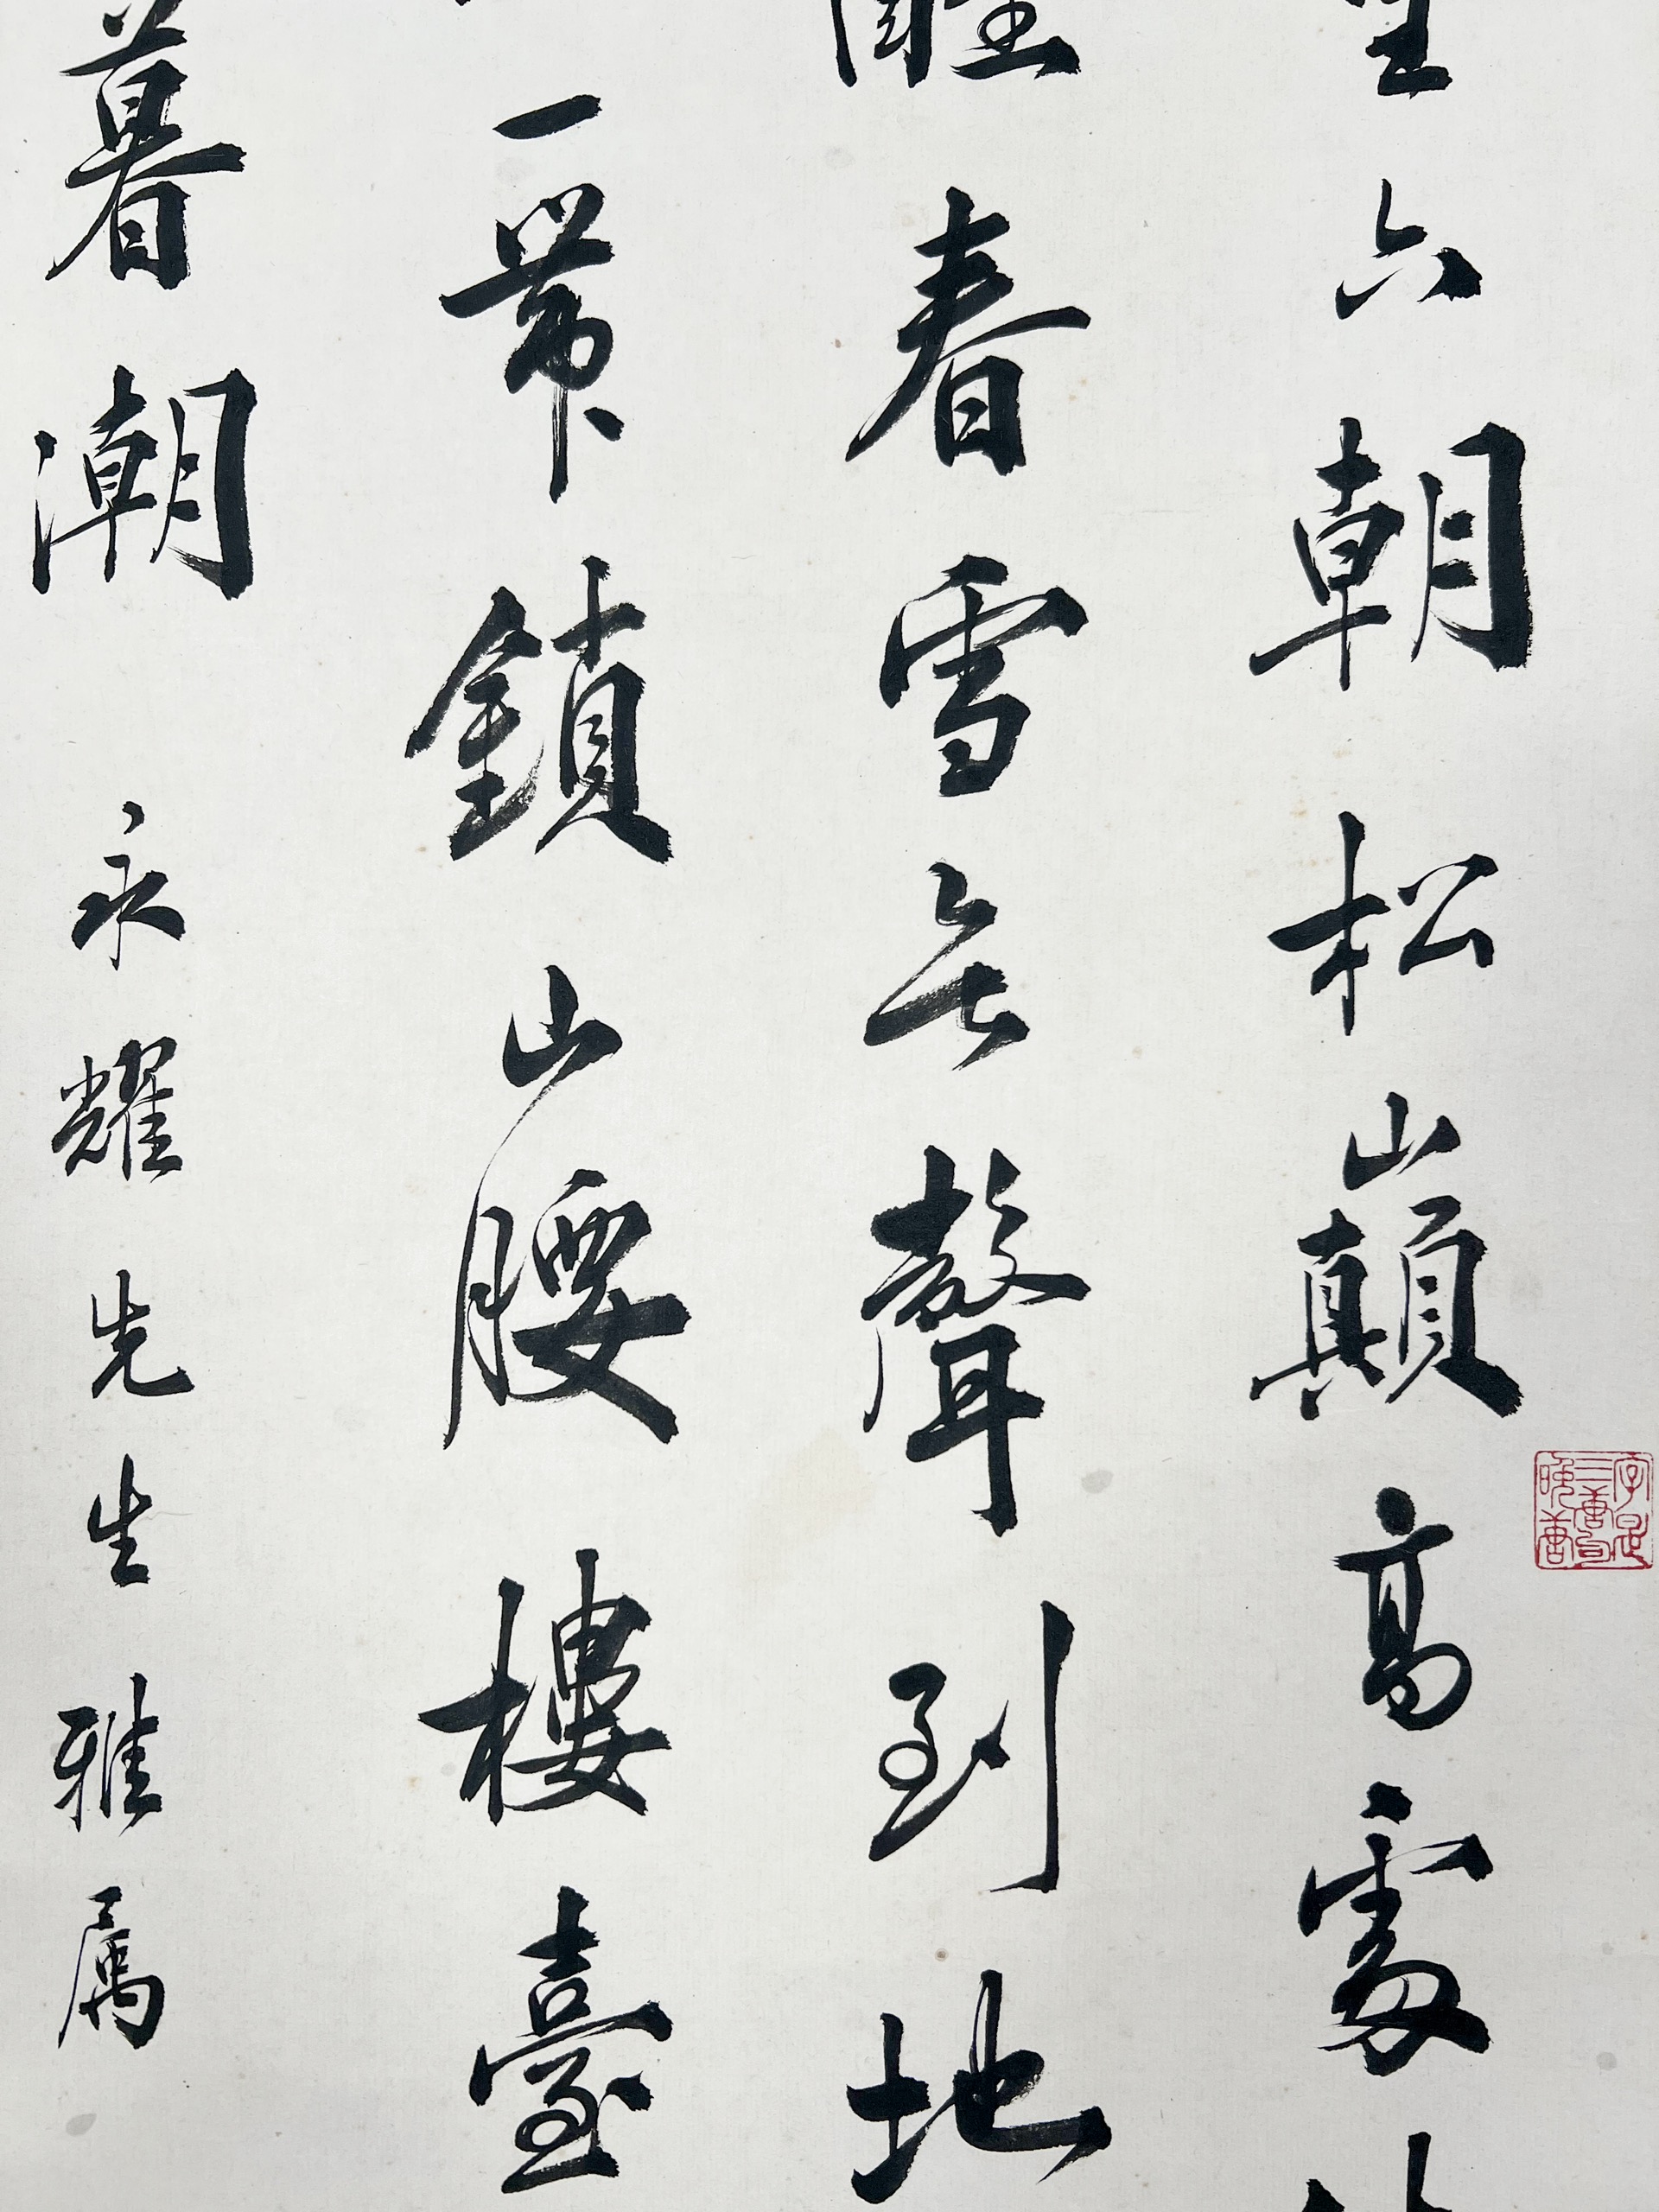 六朝松巔高處
醒春雪無聲到地
一帶鎖山腰樓臺
暮潮 永耀先生雅屬